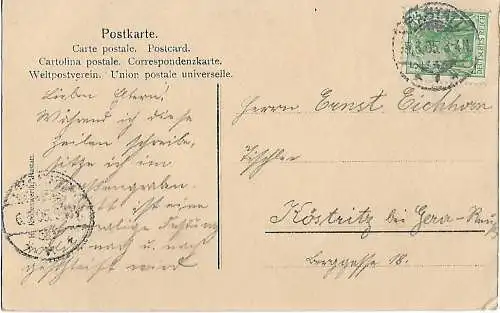 Postkarte.
Carte postale. Postcard.
Cartolina postale. Correspondenzkarte.
Weltpostverein. Union postale universelle.
Lieben Eltern!
Während ich diese
Zeilen schreibe,
sitze ich im
ist eine
malige Festung
nach u. nach
geschleift wird
Herrn Ernst Eichhorn
Tischler
Köstritz bei Gera-Reuß
Berggasse 18.